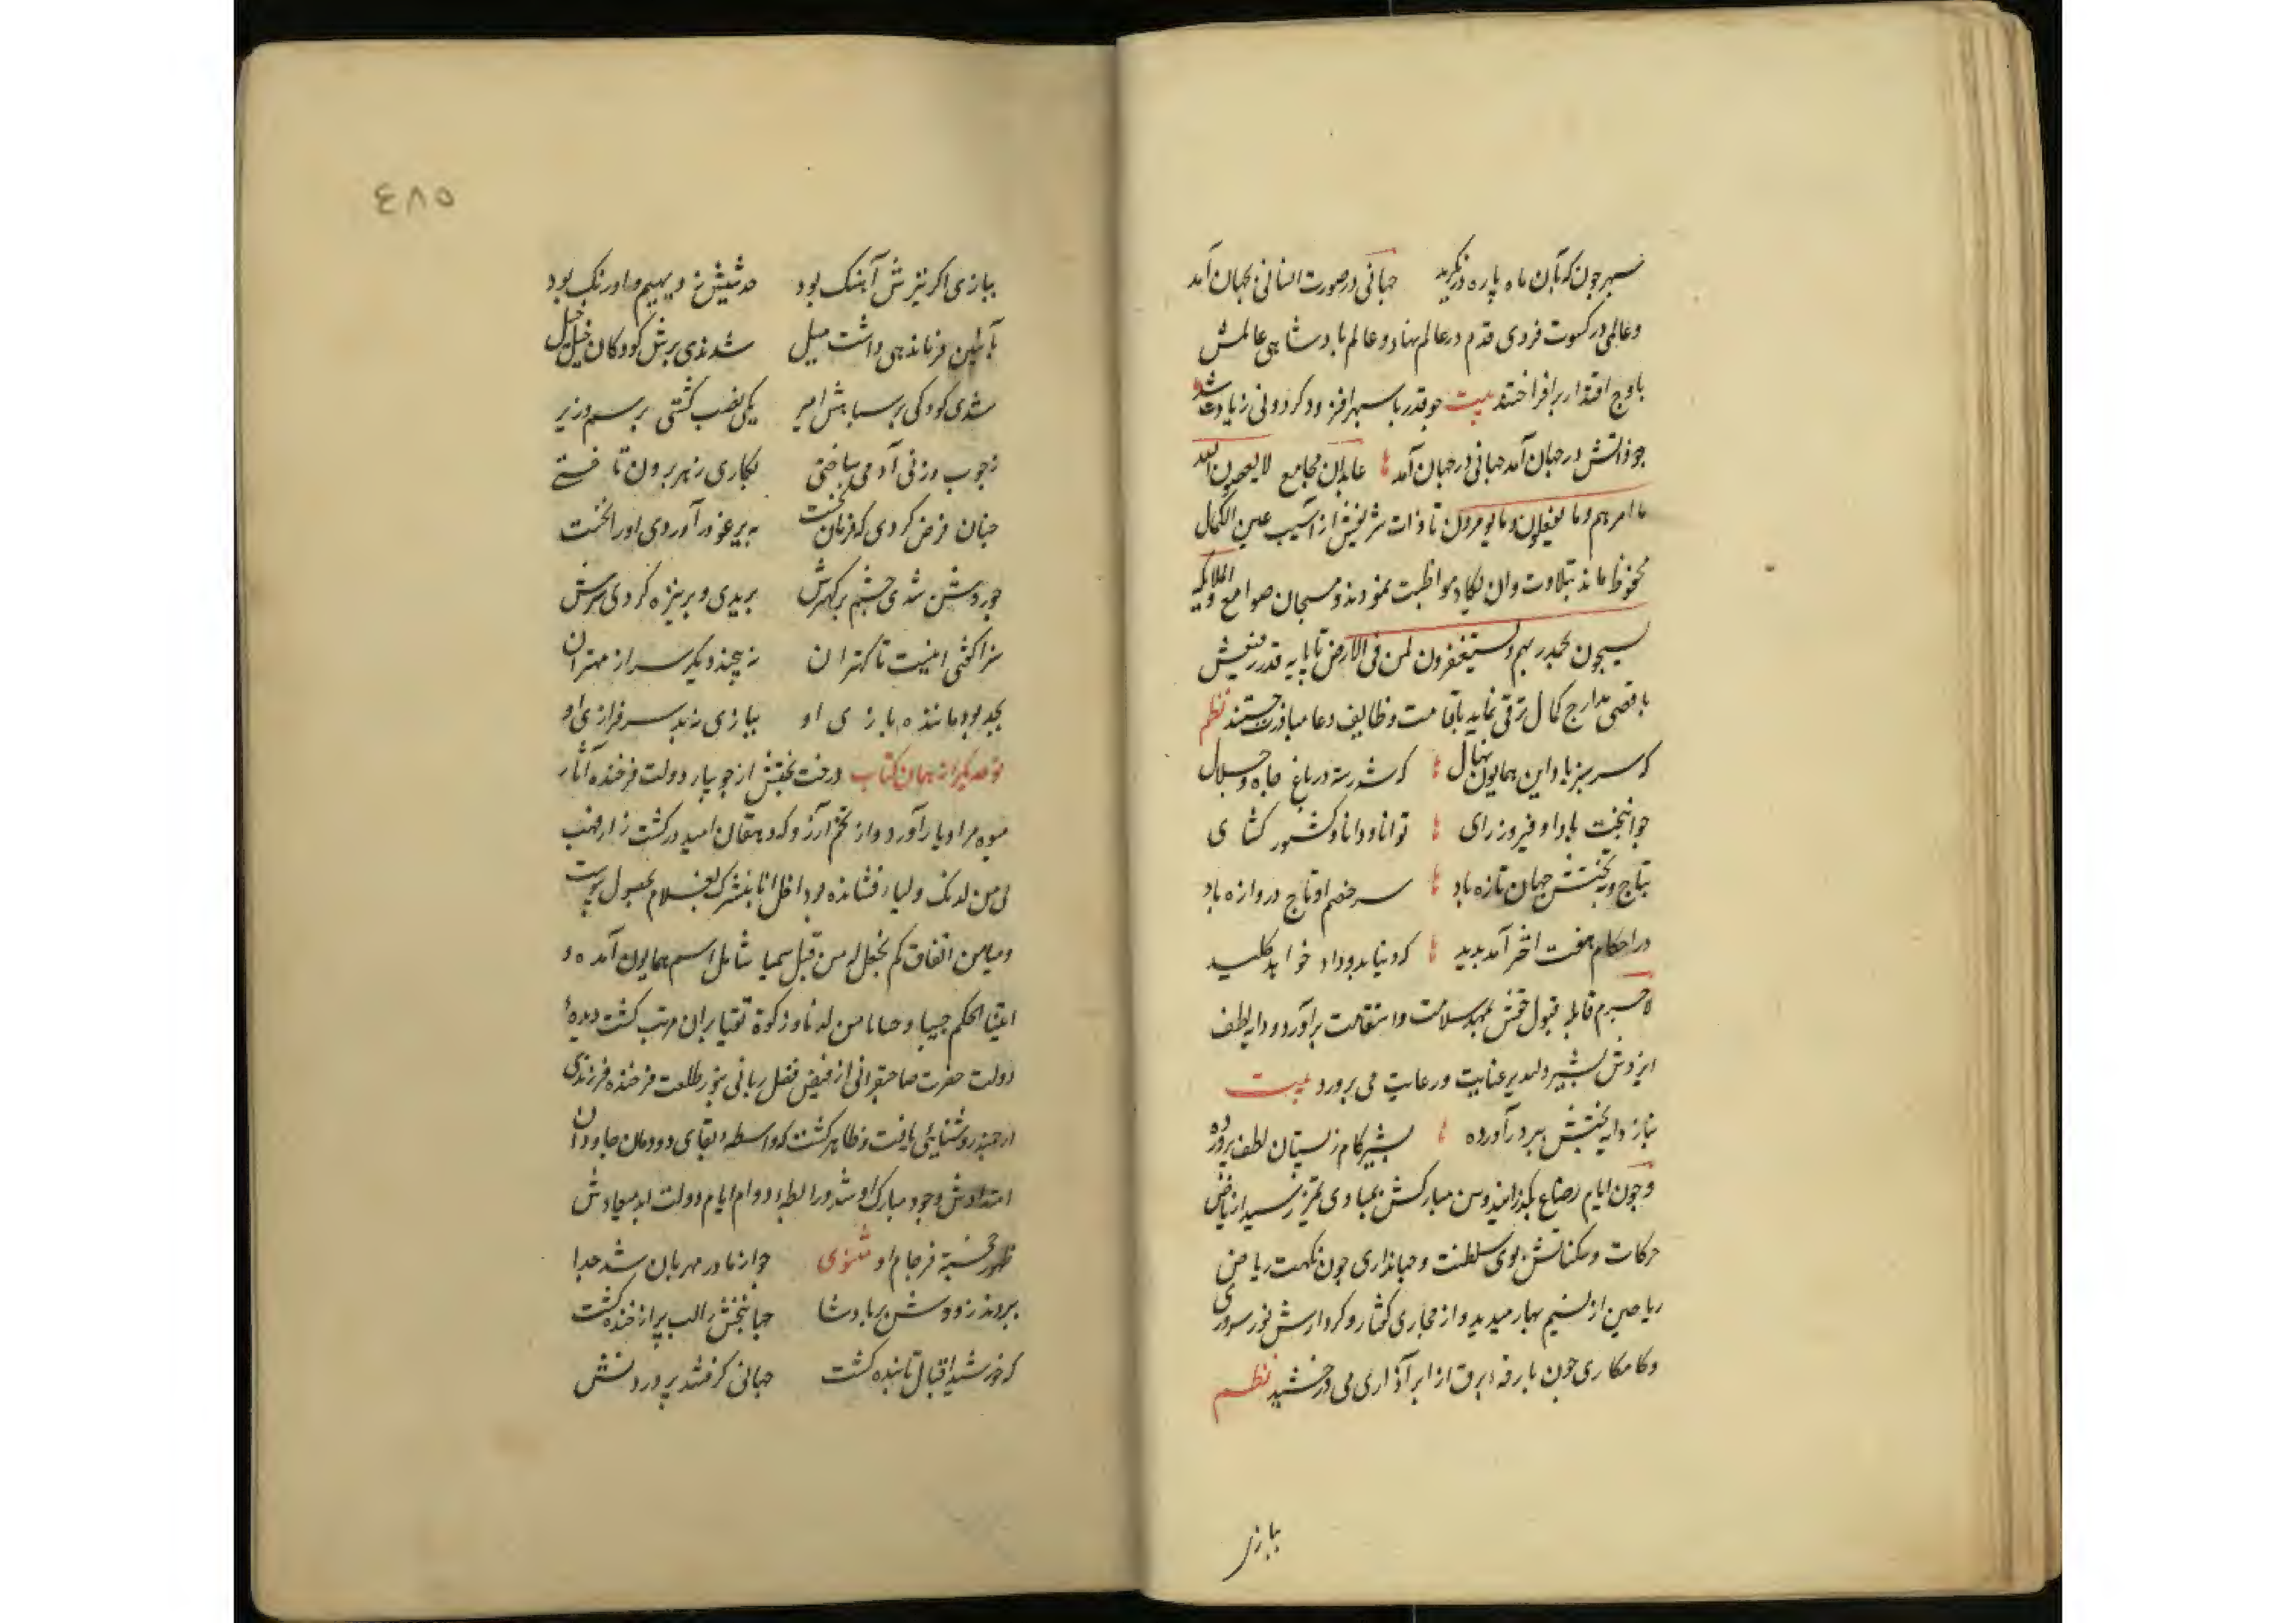 سپهر چون که بآن ماه پاره در نکرید جهانی در صورت انسانی بجهان آمد
و عالمی در کسوت فردی قدم در عالم نهاد و عالم پادشاهی عالمش
باوج اقتدار برافراختند بیت چو قدر با سپهر افزود کردونی زیادت شد
چو ذاتش در جهان آمد جهانی در جهان آمد عابدان مجامع لا یعصون الله
ما امرهم و ما یفعلون و ما یومرون تا ذات شریفش از آسیب عین الکمال
محفوظ ماند بتلاوت وان یکاد مواظبت نمودند و مسبحان صوامع و الملائکه
یسبحون بحمد ربهم و یستغفرون لمن فی الارض تا پایه قدر رفیعش
باقصی مدارج کمال ترقی نماید باقامت وظایف دعا مبادرت جستند نظم
که سرسبز باد این همایون نهال که شد رسته در باغ جاه و جلال
جوانبخت باد او فیروز رای توانا و دانا و کشور کشای
بتاج و به تختش جهان تازه باد سر خصم او تاج دروازه باد
در احکام هفت اختر آمد پدید که دنیا بدو داد خواهد کلید
لاجرم قابله قبول حقش بمهد سلامت و استقامت برآورد و دایه لطف
ایزدش بشیر دلپذیر عنایت و رعایت می پرورد بیت
بناز دایه بختش ببر درآورده بشیر کام ز پستان لطف پرورده
و چون ایام رضاع بگذرانید و سن مبارکش بمبادی تمیز رسید از ریاض
حرکات و سکناتش بوی سلطنت و جهانداری چون نکهت ریاض
ریاحین از نسیم بهار میدمید و از مجاری گفتار و کردارش نور سروری
و کامکاری چون بارقه برق از ابر آذاری می درخشید نظم
ببازی
٤٨٥
ببازی اکر نیزش آهنک بود حدیثش ز دیهیم و اورنک بود
بآئین فرماندهی داشت میل شدندی برش کودکان خیل خیل
شدی کودکی بر سپاهش امیر یکی نصب کشتی برسم وزیر
ز چوب و زنی آدمی ساختی بکاری ز بهر برون تاختی
چنان فرض کردی که فرمان نجست
چو روشن شدی خشم بر کهترش بریدی و بر نیزه کردی سرش
سزا گفتی اینست تا کهتران نپیچند دیکر سر از مهتران
بجد بود ماننده بازی او ببازی نبد سرفرازی او
نوعدیکر از همان کتاب درخت بختش از جویبار دولت فرخنده آثار
میوه مراد بار آورد و از تخم آرزو که دهقان امید در کشت زار فهب
لی من لدنک ولیا افشانده بود اظل انا نبشرک بغلام بحصول پیوست
و میامن اتفاق لم نجعل له من قبل سمیا شامل اسم همایون آمده و
اتینا الحکم صبیا و حنانا من لدنا و زکوة تقیا بران مرتب کشت دیده
دولت حضرت صاحبقرانی از فیض فضل ربانی بنور طلعت فرخنده فرزندی
ارجمند روشنایی یافت و ظاهر کشت که واسطه بقای دودمان جاودان
امتدادش وجود مبارک او شد و رابطه دوام ایام دولت ابد میعادش
ظهور خجسته فرجام او مثنوی چو از مادر مهربان شد جدا
ببردند زودش بر پادشا جهانبخش را لب پر از خنده کشت
که خورشید اقبال تابنده کشت جهانی کرفتند پروردنش